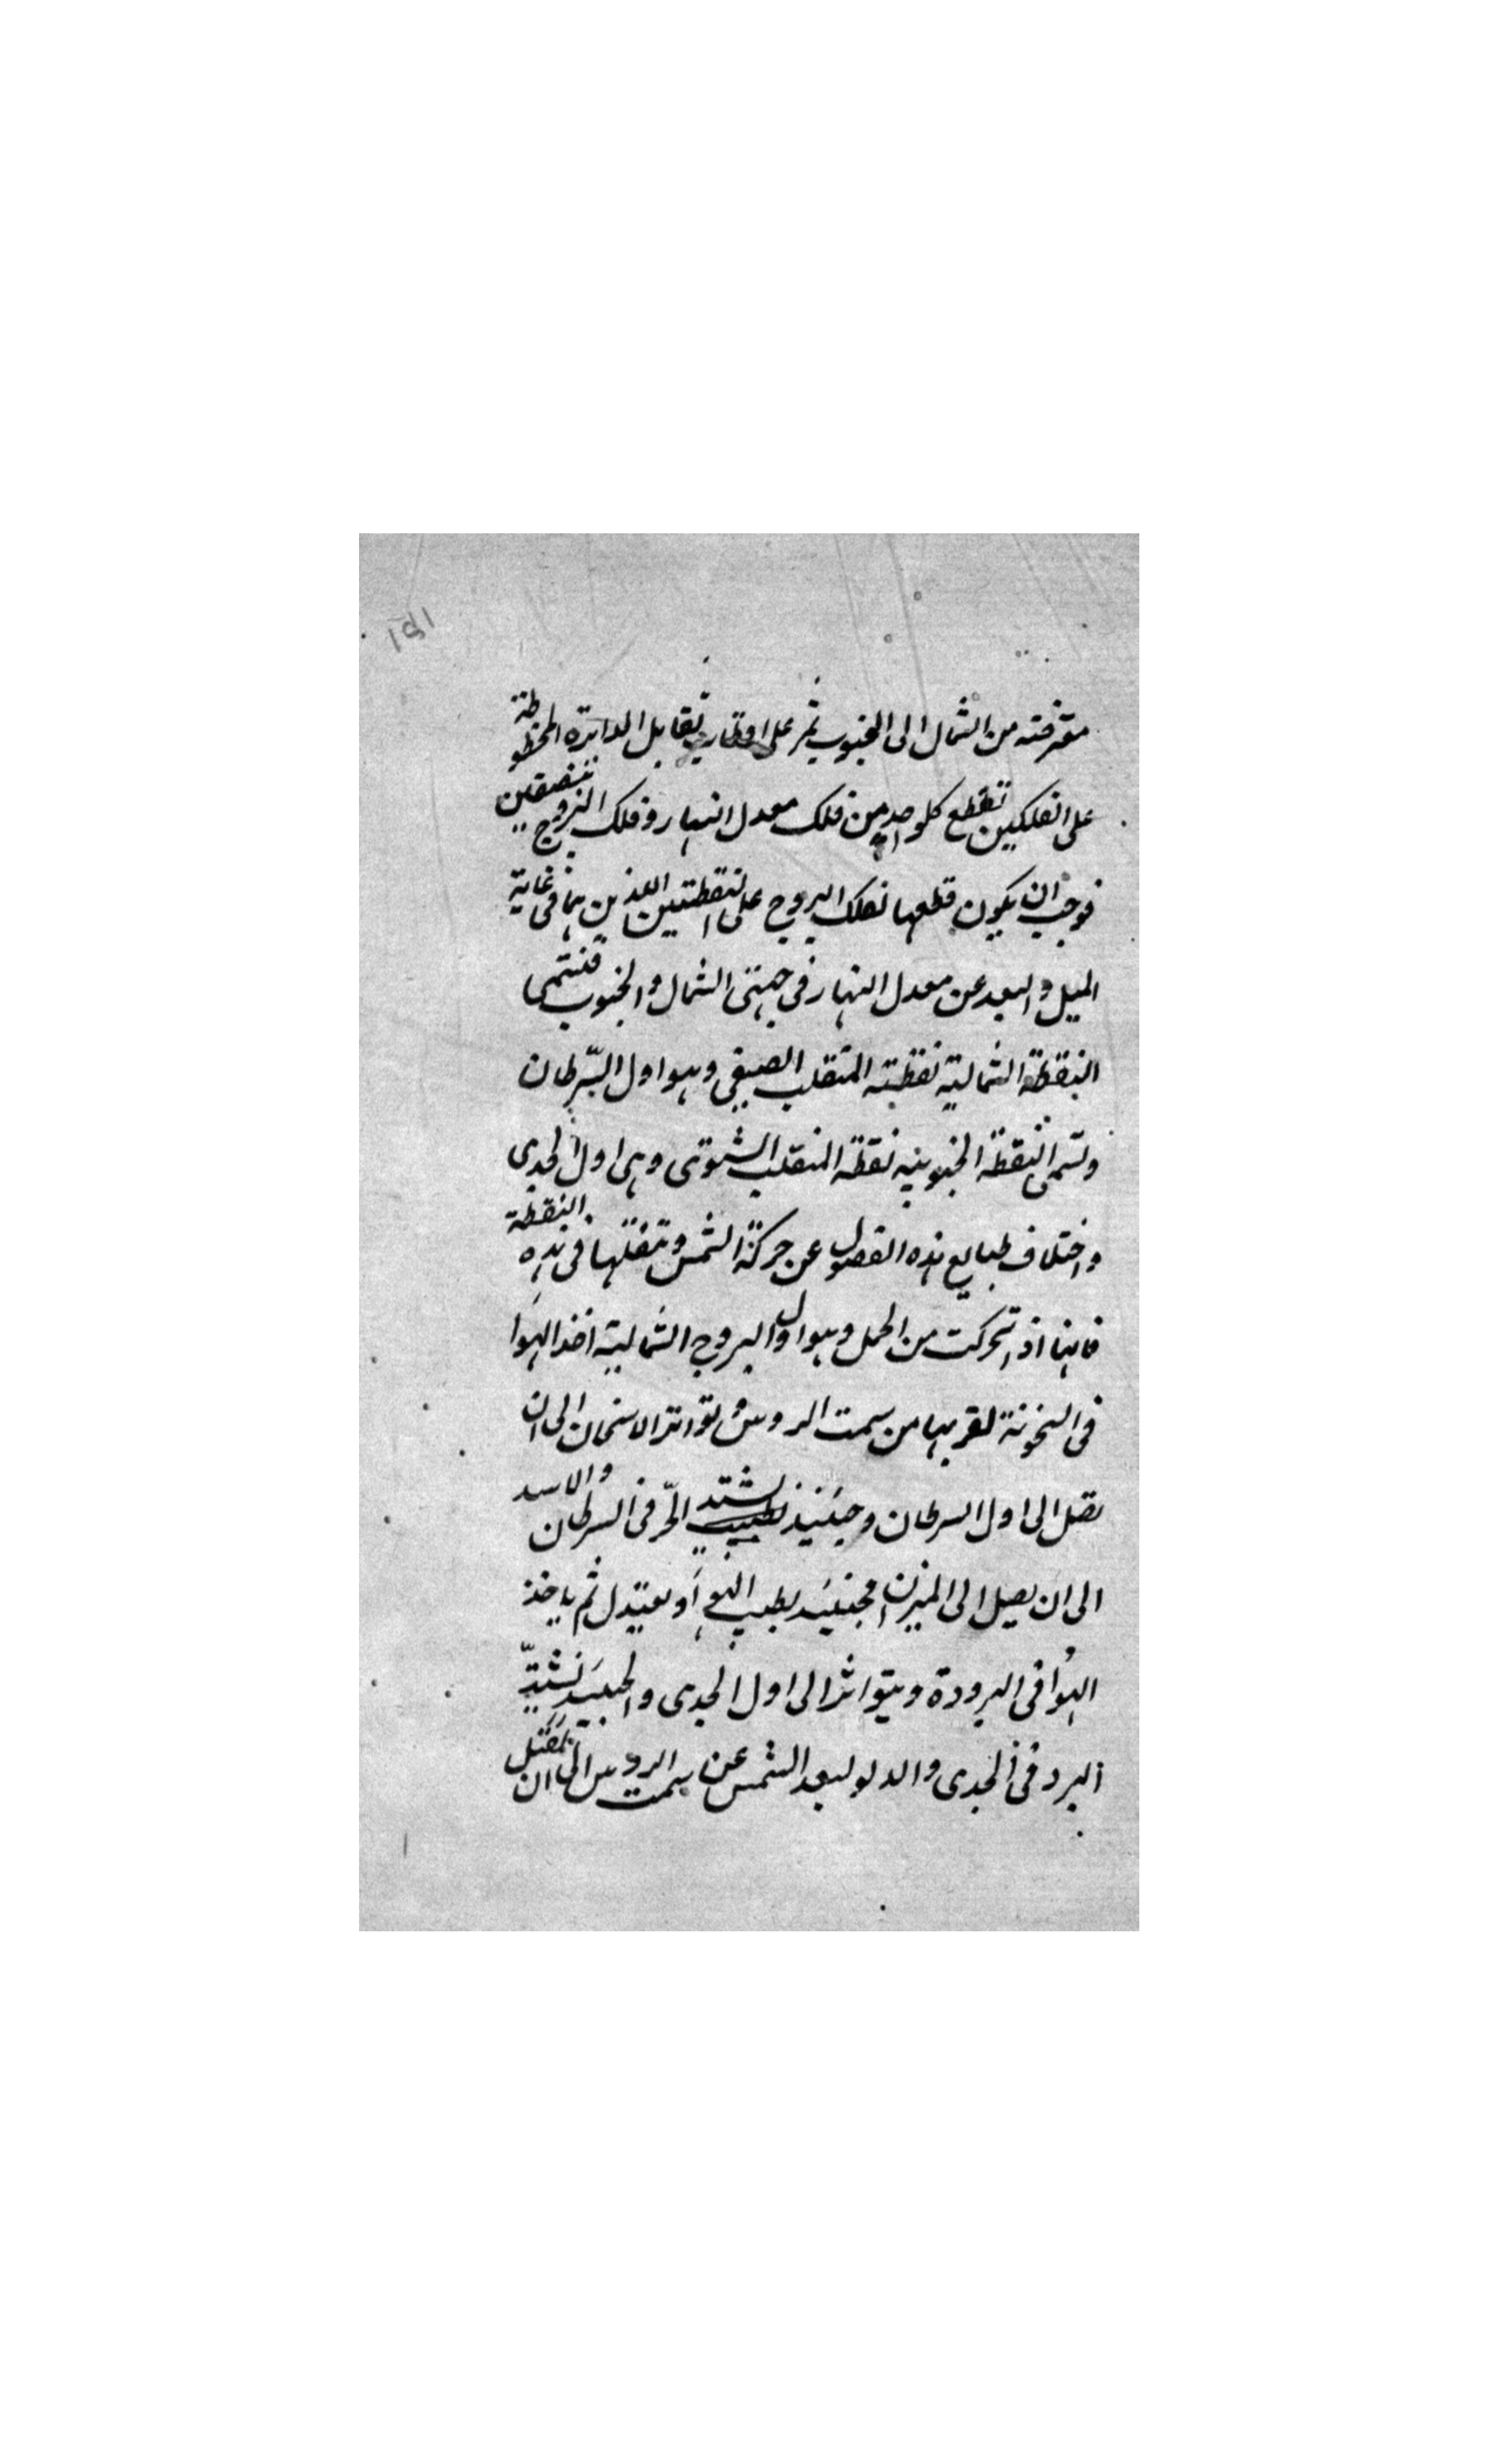 معرفته من الشمال الى الجنوب ثم على اوتار تقابل الدايرة المخطوطة
على الفلكين تقطع كلواحد من فلك معدل النهار وفلك البروج بنصفين
فوجب ان يكون قطعها لفلك البروج على النقطتين اللذين هما فى غاية
الميل والبعد عن معدل النهار فى جهتى الشمال والجنوب فتسمى
النقطة الشمالية نقطة المنقلب الصيفى وهو اول السّرطان
وتسمى النقطة الجنوبيه نقطة المنقلب الشتوى وهى اول الجدى
واختلاف طبايع هذه الفصول عن حركة الشمس وتنقلها فى هذه النقطة
فانها اذا تحركت من الحمل وهو اول البروج الشمالية اخذ الهوا
فى السخونة لقربها من سمت الروس وتواتر الاسخان الى ان
تصل الى اول السرطان وحينئذ يشتد الحّر فى السرطان والاسد
الى ان يصل الى الميزان فحينئذ يطيب الهوا ويعتدل ثم ياخذ
الهوا فى البرودة ويتواتر الى اول الجدى وحينئذ يشتدّ
البرد فى الجدى والدلو لبعد الشمس عن سمت الروس الى ان